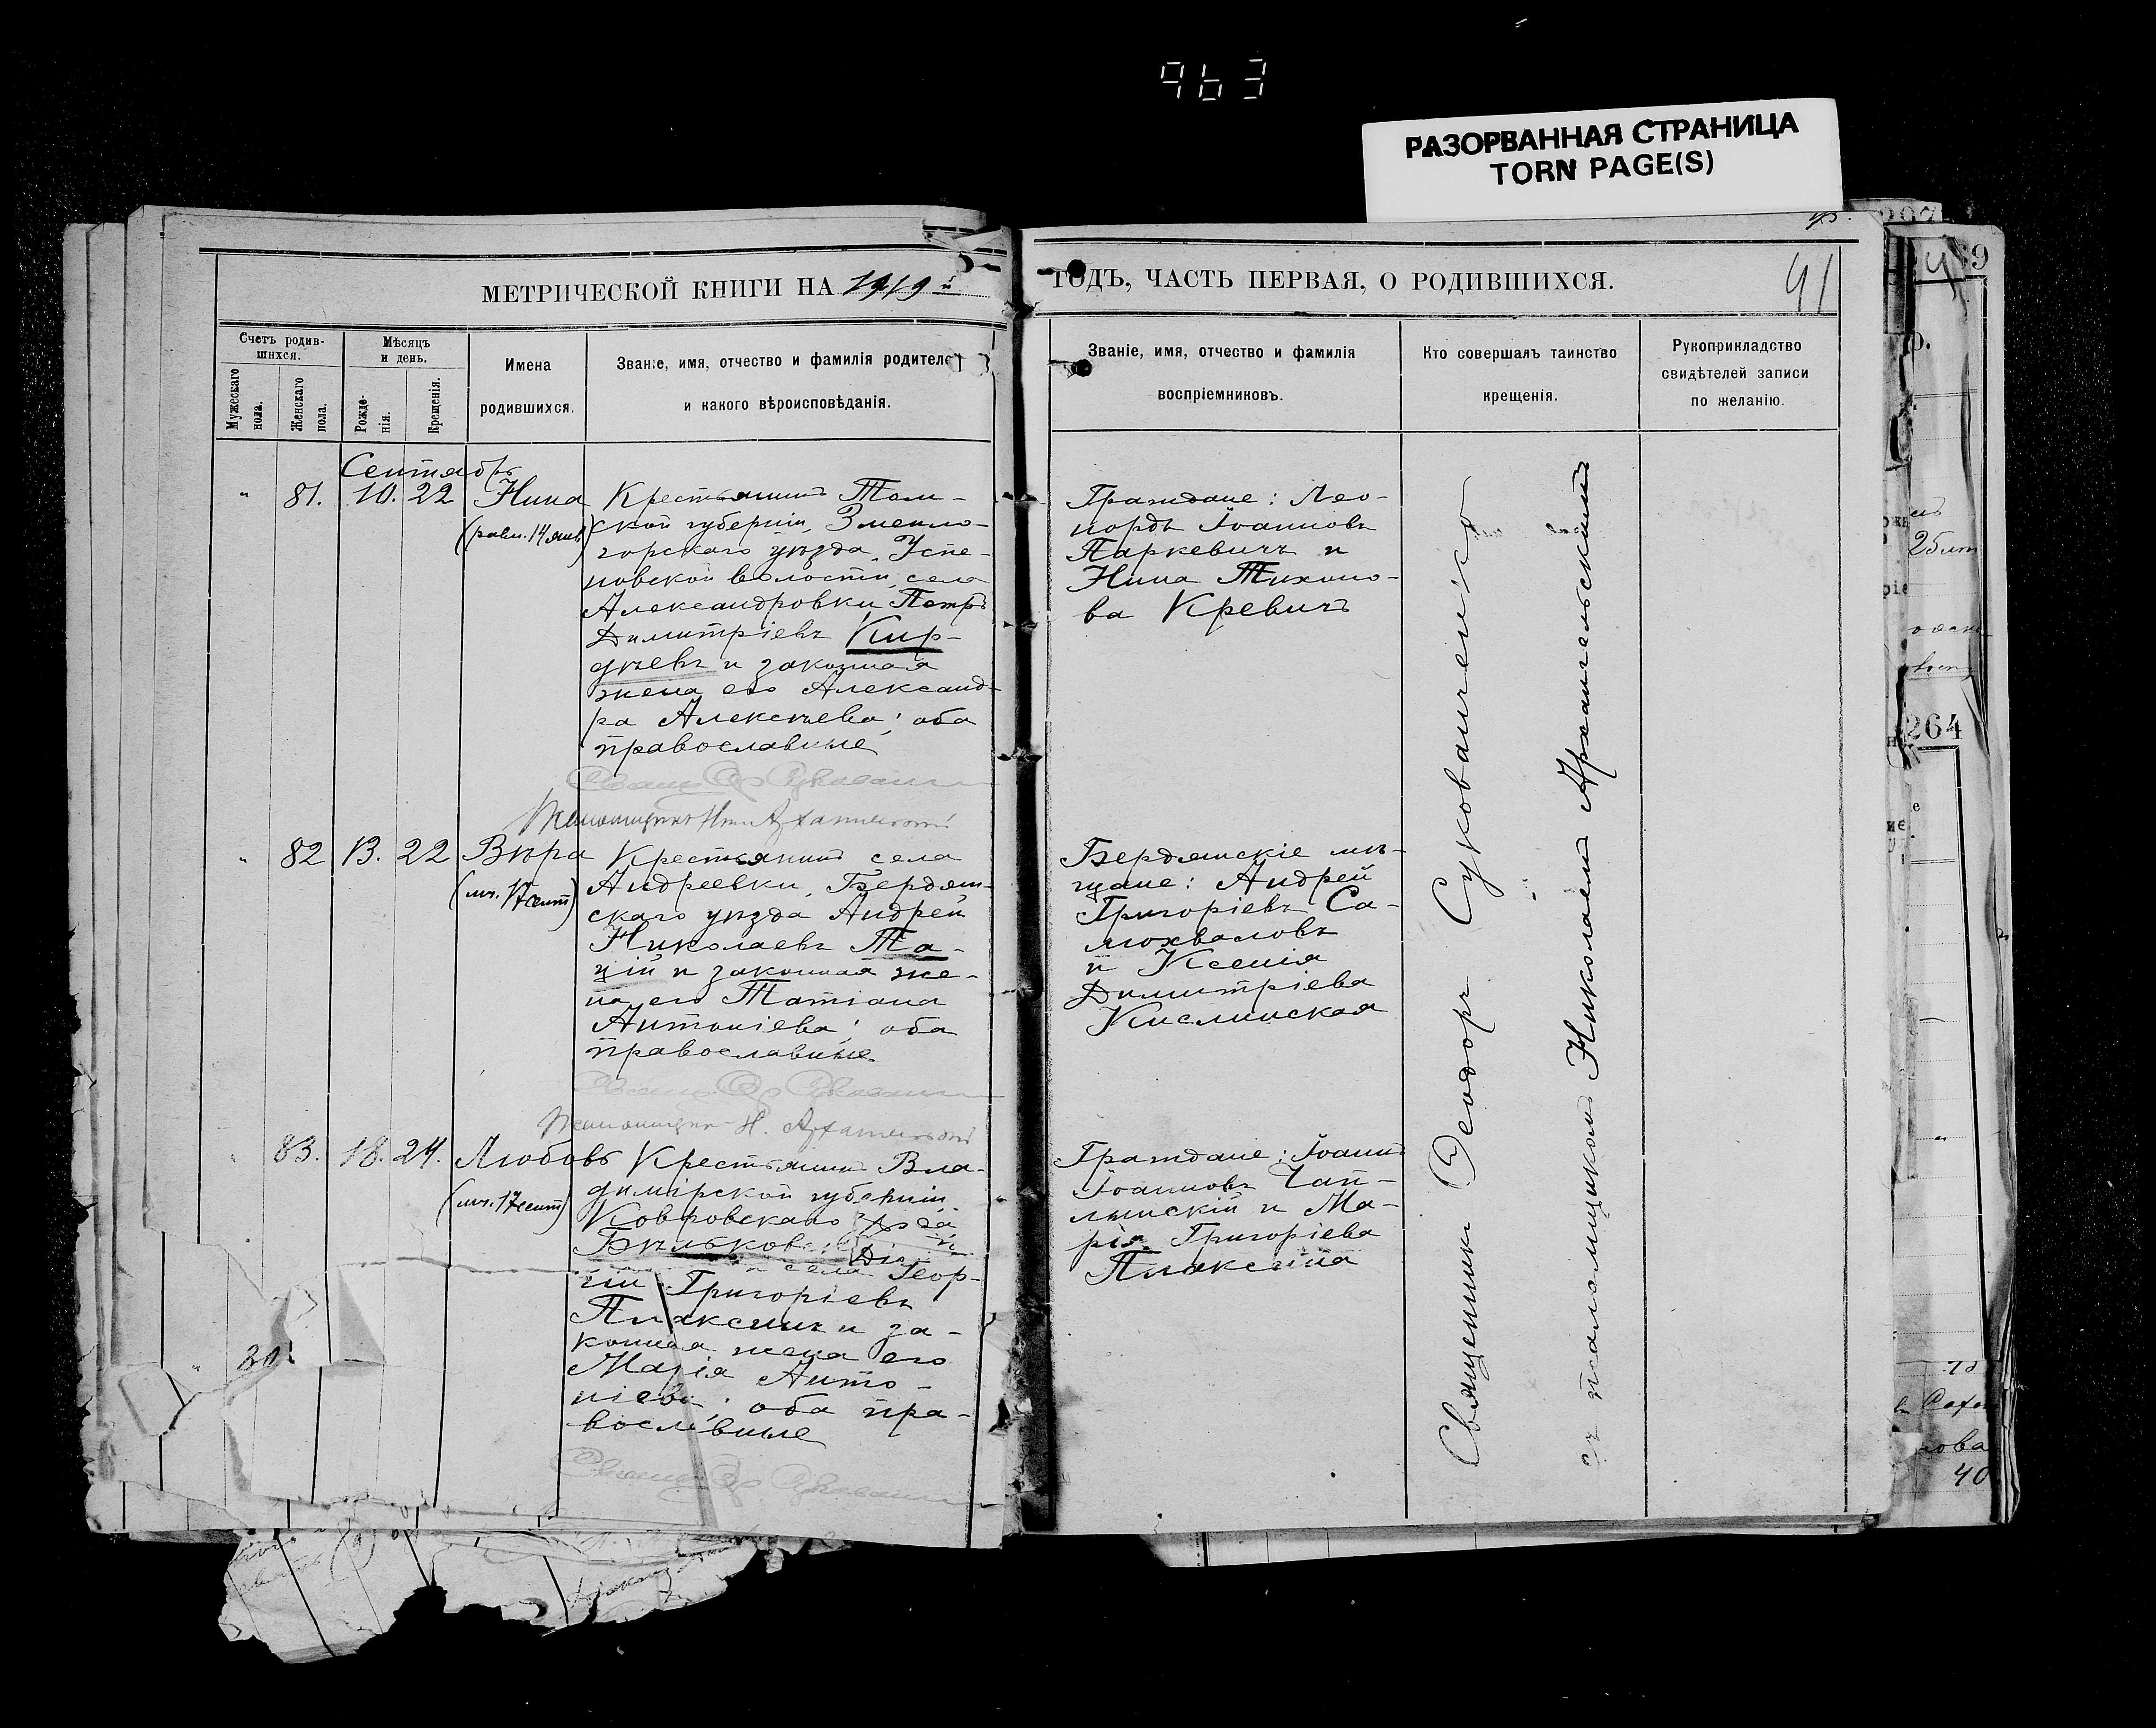 963
РАЗОРВАННАЯ СТРАНИЦА
TORN PAGE(S)
41
МЕТРИЧЕСКОЙ КНИГИ НА 1919й
ГОДЪ, ЧАСТЬ ПЕРВАЯ, О РОДИВШИХСЯ.
Счетъ родив-
шихся.
Мужескаго
пола.
Женскаго
пола.
Мѣсяцъ
и день.
Рожде-
нія.
Крещенія.
Имена
родившихся.
Званіе, имя, отчество и фамилія родителе
и какого вѣроисповѣданія.
Званіе, имя, отчество и фамилія
воспріемниковъ.
Кто совершалъ таинство
крещенія.
Рукоприкладство
свидѣтелей записи
по желанію.
Сентябрь
" 81. 10. 22 Нина
(равн. 14 янв)
Крестьянинъ Том-
ской губерніи, Змеино-
горскаго уѣзда, Успе-
новской волости, села
Александровки Петръ
Димитріевъ Кир-
дѣевъ и законная
жена его Александ-
ра Алексѣева; оба
православные
Граждане: Лео-
нардъ Іоанновъ
Паркевичъ и
Нина Тихоно-
ва Кревичъ
" 82 13. 22 Вѣра
(мч. 17 сент)
Крестьянинъ села
Андреевки, Бердян-
скаго уѣзда Андрей
Николаевъ Та-
цій и законная же-
на его Татіана
Антоніева; оба
православные
Н.
Бердянскіе мѣ-
щане: Андрей
Григоріевъ Са-
мохваловъ
и Ксенія
Димитріева
Кислинская
83. 18. 24. Любовь
(мч. 17 сент)
Крестьянинъ Вла-
димірской губерніи
Ковровскаго
Бѣльков
села Геор-
гій Григоріевъ
Плаксинъ и за-
конная жена его
Марія Анто-
ніева; оба пра-
вославные
Граждане: Іоаннъ
Іоанновъ Чап-
линскій и Ма-
рія Григоріева
Плаксина
Священникъ Ѳеодоръ Сукованченко
съ псаломщикомъ Николаемъ Архангельскимъ
264
40